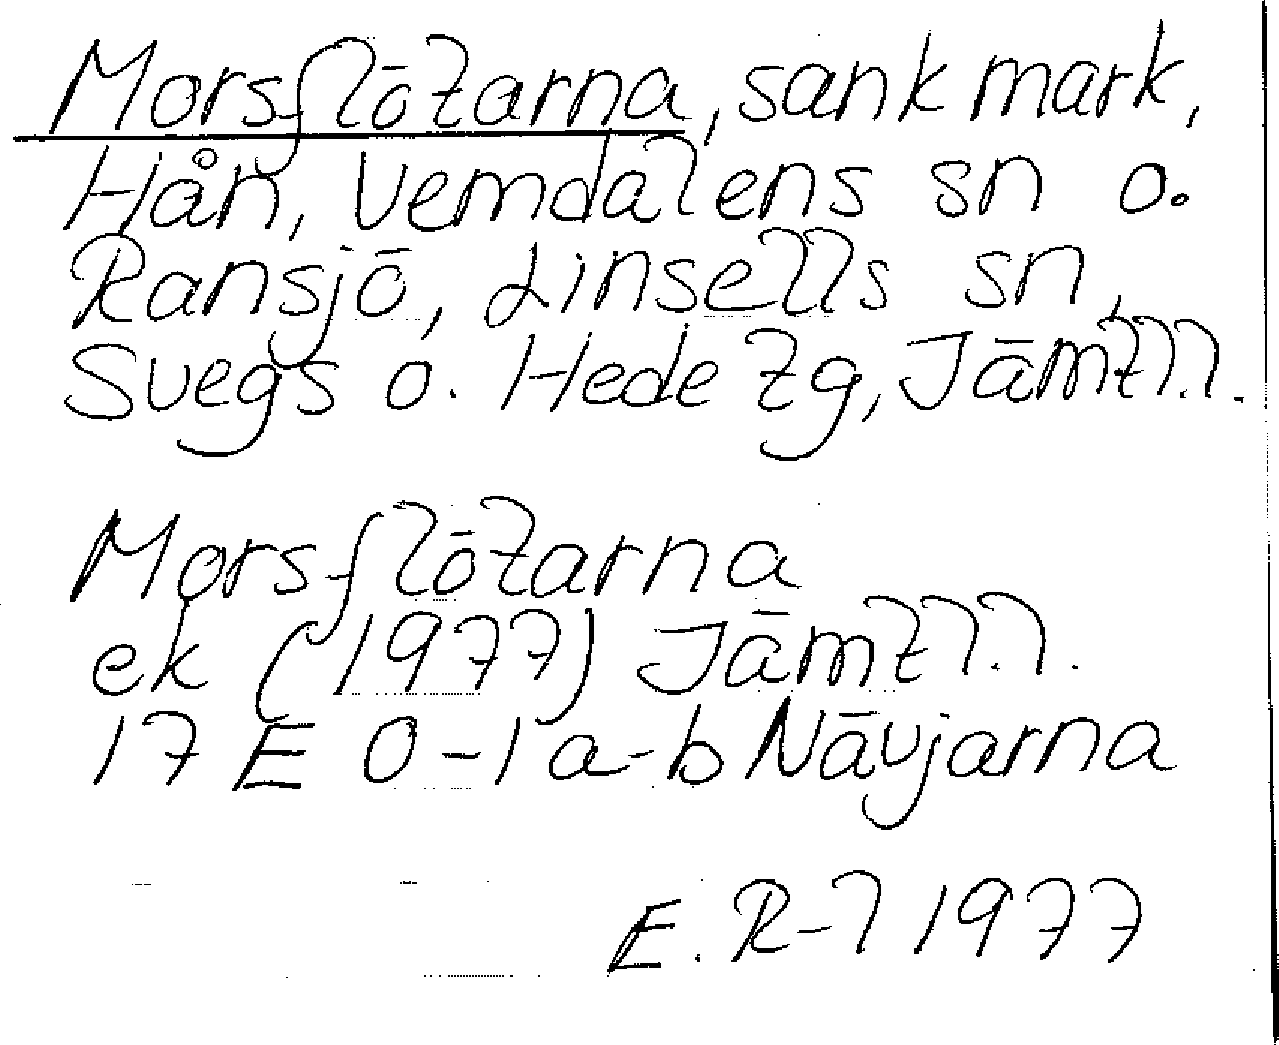 Morsflötarna, sank mark,
Hån, Vemdalens sn o.
Ransjö, Linsells sn,
Svegs o. Hede tg, Jämtl.l.
Morsflötarna
ek (1977) Jämtl.l.
17 E 0-1 a-b Nävjarna
E. R-l 1977